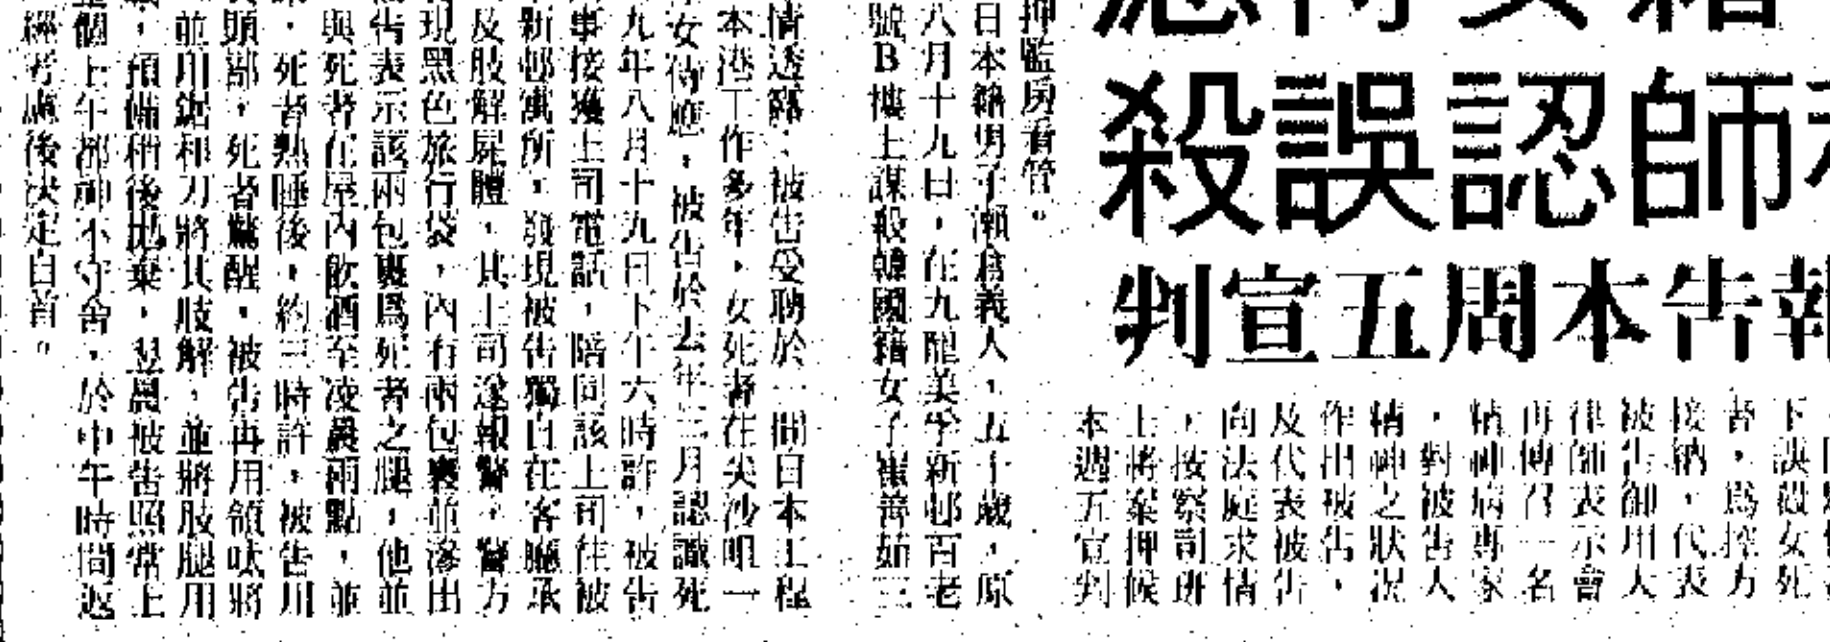 師認誤殺
報告本周五宣判
下誤殺女死
者，爲控方
接納，代表
被告御用大
律師表示會
再傳召一名
精神病專家
，對被告人
精神之狀況
作出被告，
及代表被告
向法庭求情
，按察司班
上將案押候
本週五宣判
押監房看管。
日本籍男子瀨倉義人，五十歲，原
八月十九日，在九龍美孚新邨百老
號B樓上謀殺韓國籍女子崔善茹三
情透露，被告受聘於一間日本工程
本港工作多年，女死者在尖沙咀一
女侍應，被告於去年三月認識死
九年八月十九日下午六時許，被告
事接獲上司電話，陪同該上司往被
新邨寓所，發現被告獨自在客廳承
及肢解屍體，其上司遂報警，警方
現黑色旅行袋，內有兩包裹並滲出
告表示該兩包裹爲死者之腿，他並
與死者在屋內飲酒至凌晨兩點，並
，死者熟睡後，約三時許，被告用
頭部，死者驚醒，被告再用領呔將
並用鋸和刀將其肢解，並將肢腿用
，預備稍後拋棄，翌晨被告照常上
個上午都神不守舍，於中午時間返
經考慮後決定自首。